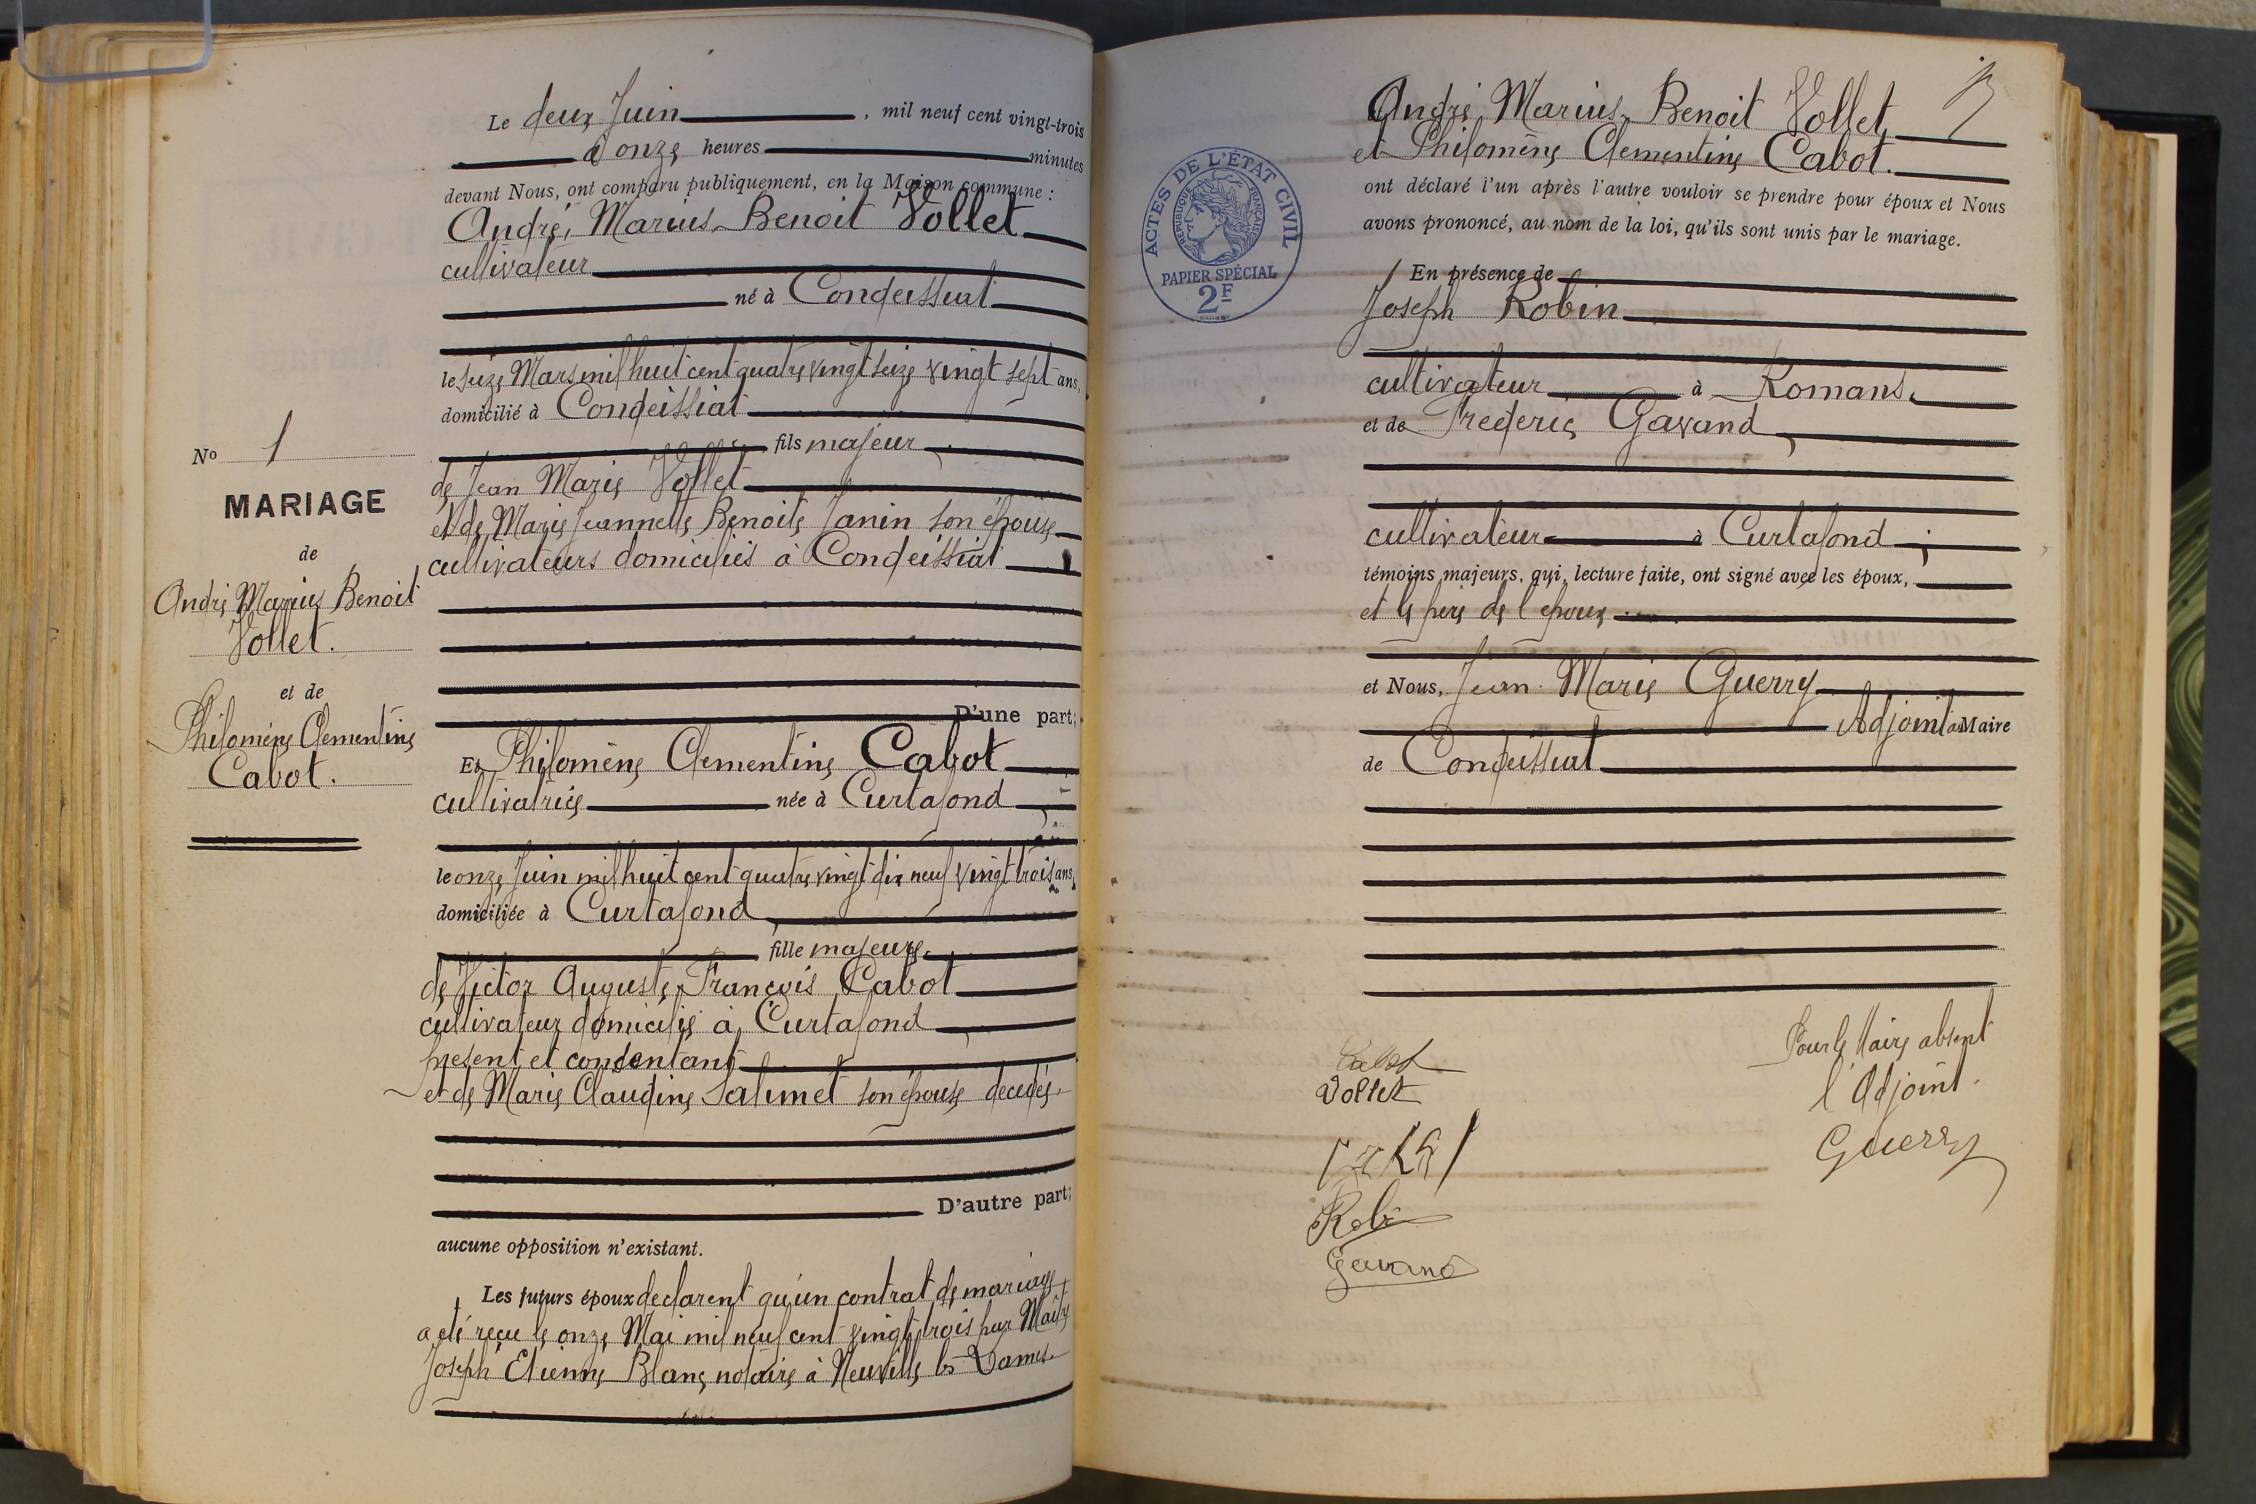 Le deux Juin , mil neuf cent vingt-trois
à onze heures minutes
devant Nous, ont comparu publiquement, en la Maison commune :
André, Marius Benoit Vollet
cultivateur
né à Condeissiat
le seize Mars mil huit cent quatre vingt seize vingt sept ans,
domicilié à Condeissiat
fils majeur
de Jean Marie Vollet
et de Marie Jeannette Benoite Janin son épouse
cultivateurs domiciliés à Condeissiat
D'une part;
Et Philomène Clementine Cabot
cultivatrice née à Curtafond
le onze Juin mil huit cent quatre vingt dix neuf vingt trois ans,
domiciliée à Curtafond
fille majeure
de Victor Auguste François Cabot
cultivateur domicilié à Curtafond
présent et consentant
et de Marie Claudine Salimet son épouse décédée
D'autre part;
aucune opposition n'existant.
Les futurs époux declarent qu'un contrat de mariage
a été reçu le onze Mai mil neuf cent vingt trois par Maître
Joseph Etienne Blanc notaire à Neuville les Dames
No 1
MARIAGE
de
André Marius Benoit
Vollet.
et de
Philomène Clementine
Cabot.
André Marius Benoit Vollet
et Philomène Clementine Cabot.
ont déclaré l'un après l'autre vouloir se prendre pour époux et Nous
avons prononcé, au nom de la loi, qu'ils sont unis par le mariage.
En présence de
Joseph Robin
cultivateur à Romans
et de Frederic Gavand
cultivateur à Curtafond ;
témoins majeurs, qui, lecture faite, ont signé avec les époux,
et le père de l'époux
et Nous, Jean Marie Guerry
Adjoint au Maire
de Condeissiat
ACTES DE L'ÉTAT CIVIL
RÉPUBLIQUE FRANÇAISE
PAPIER SPÉCIAL
2F
Pour le Maire absent
l'Adjoint
Guerry
Cabot
Vollet
Robin
Gavand